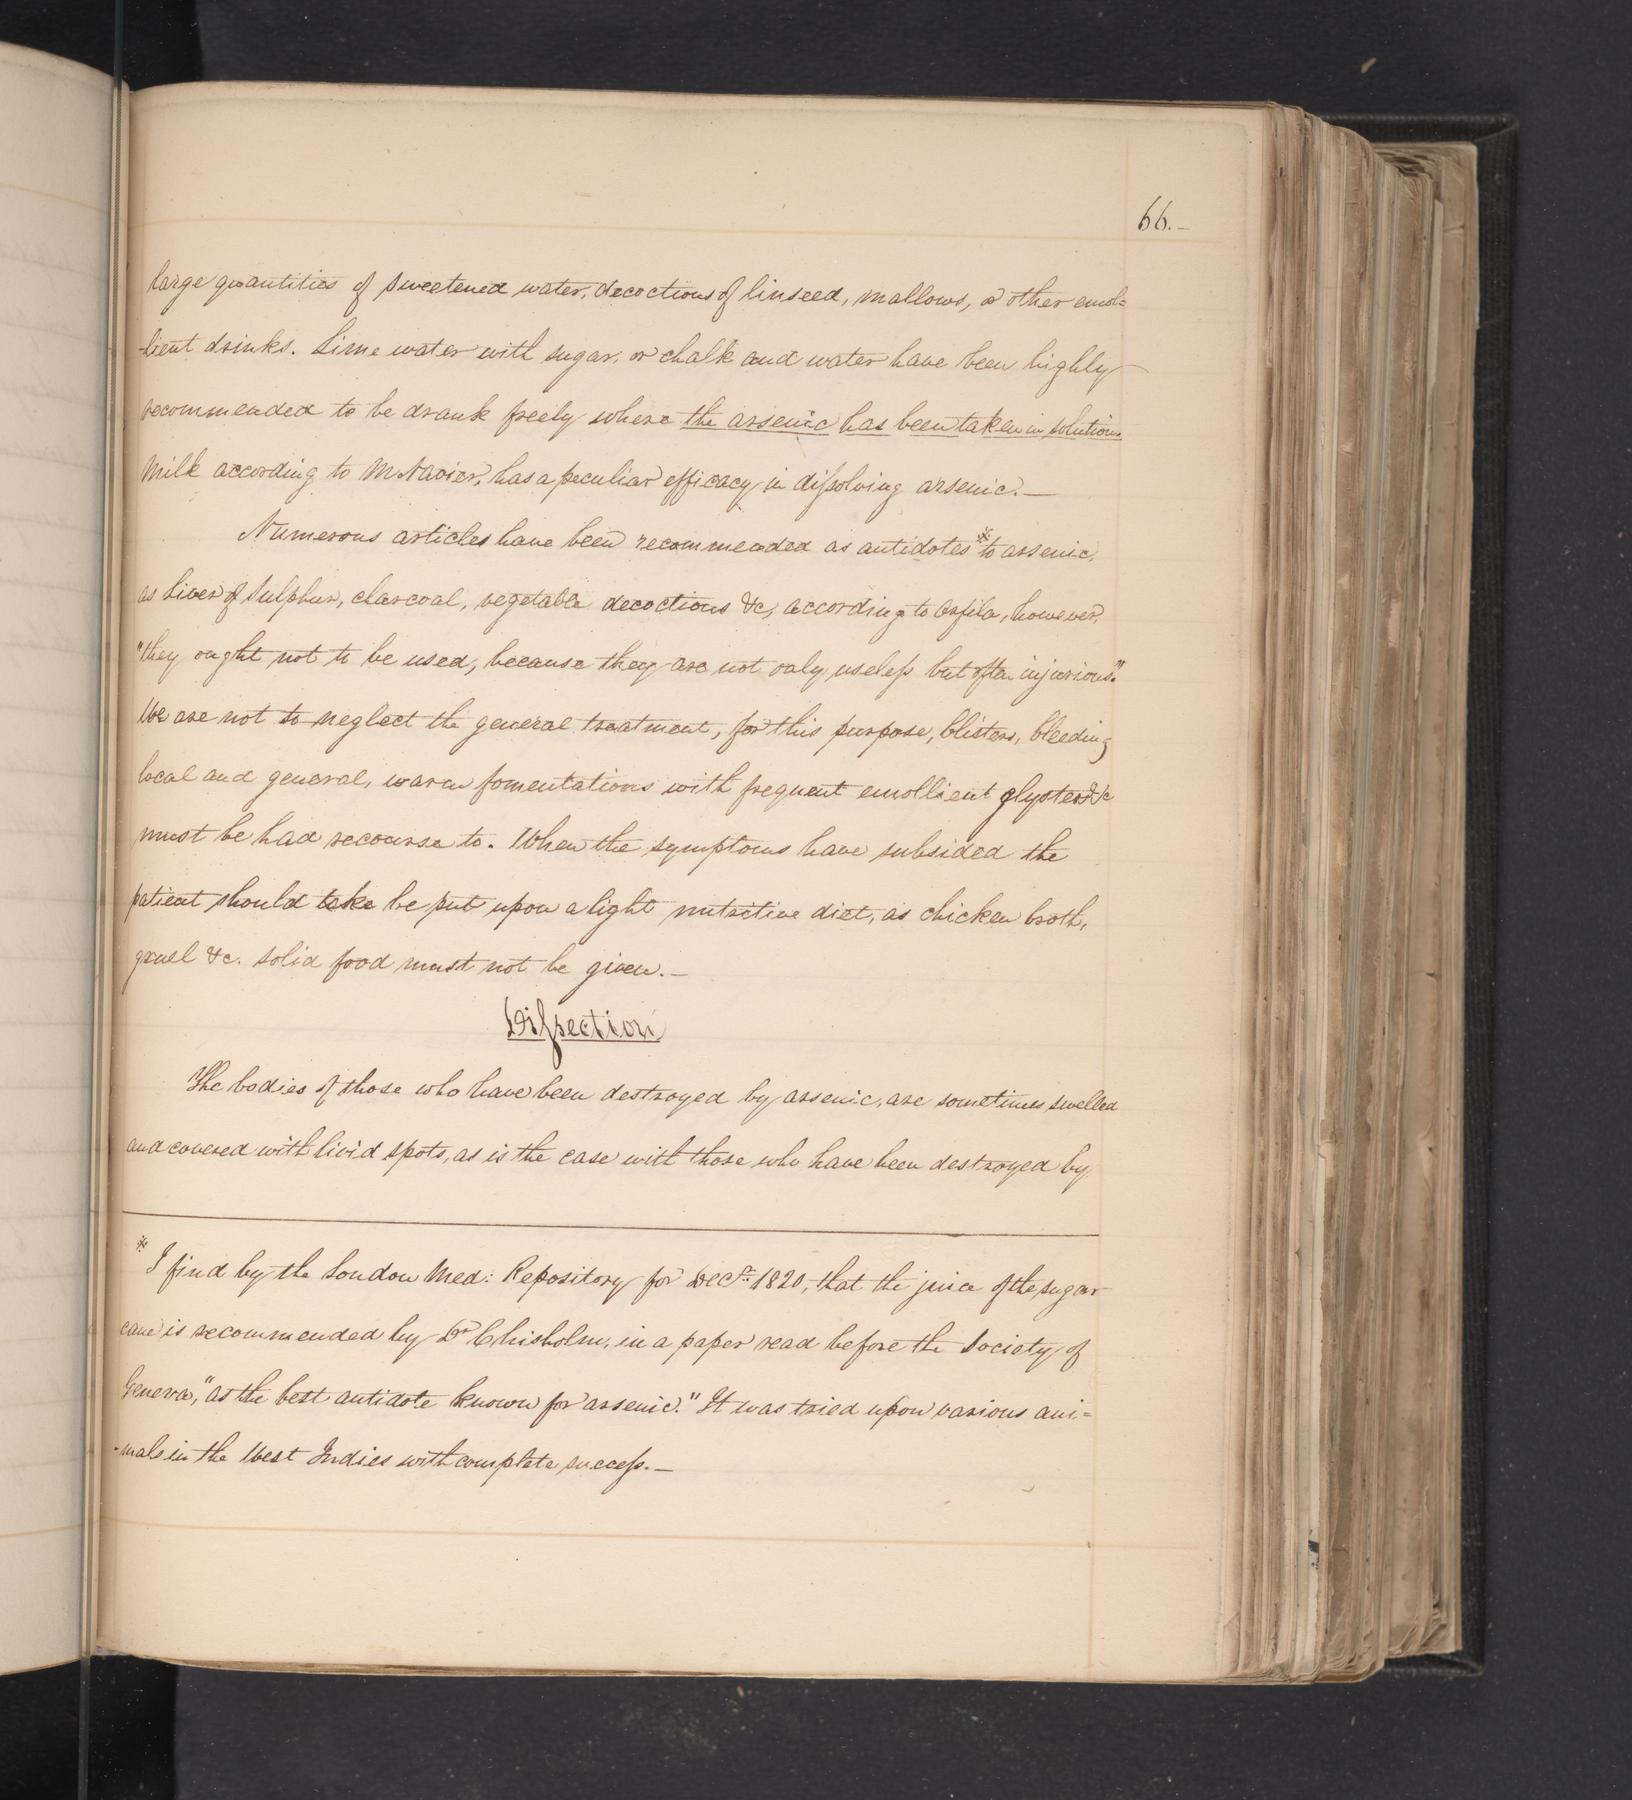 66.-
large quantities of sweetened water, decoctions of linseed, mallows, or other emol=
-lient drinks. Lime water with sugar, or chalk and water have been highly
recommended to be drank freely where the arsenic has been taken in solution.
Milk according to M Navier, has a peculiar efficacy in dissolving arsenic.—
Numerous articles have been recommended as antidotes * to arsenic,
as Liver of Sulphur, charcoal, vegetable decoctions &c, according to Orfila, however,
"they ought not to be used, because they are not only useless but often injurious."
We are not to neglect the general treatment, for this purpose, blisters, bleeding
local and general, warm fomentations with frequent emollient glysters &c
must be had recourse to. When the symptoms have subsided the
patient should take be put upon a light nutritive diet, as chicken broth,
gruel &c. solid food must not be given.—
Dissection
The bodies of those who have been destroyed by arsenic, are sometimes swelled
and covered with livid spots, as is the case with those who have been destroyed by
* I find by the London Med: Repository for Decr. 1820, that the juice of the sugar
cane is recommended by Dr Chisholm, in a paper read before the Society of
Geneva, "as the best antidote known for arsenic." It was tried upon various ani=
-mals in the West Indies with complete success.—